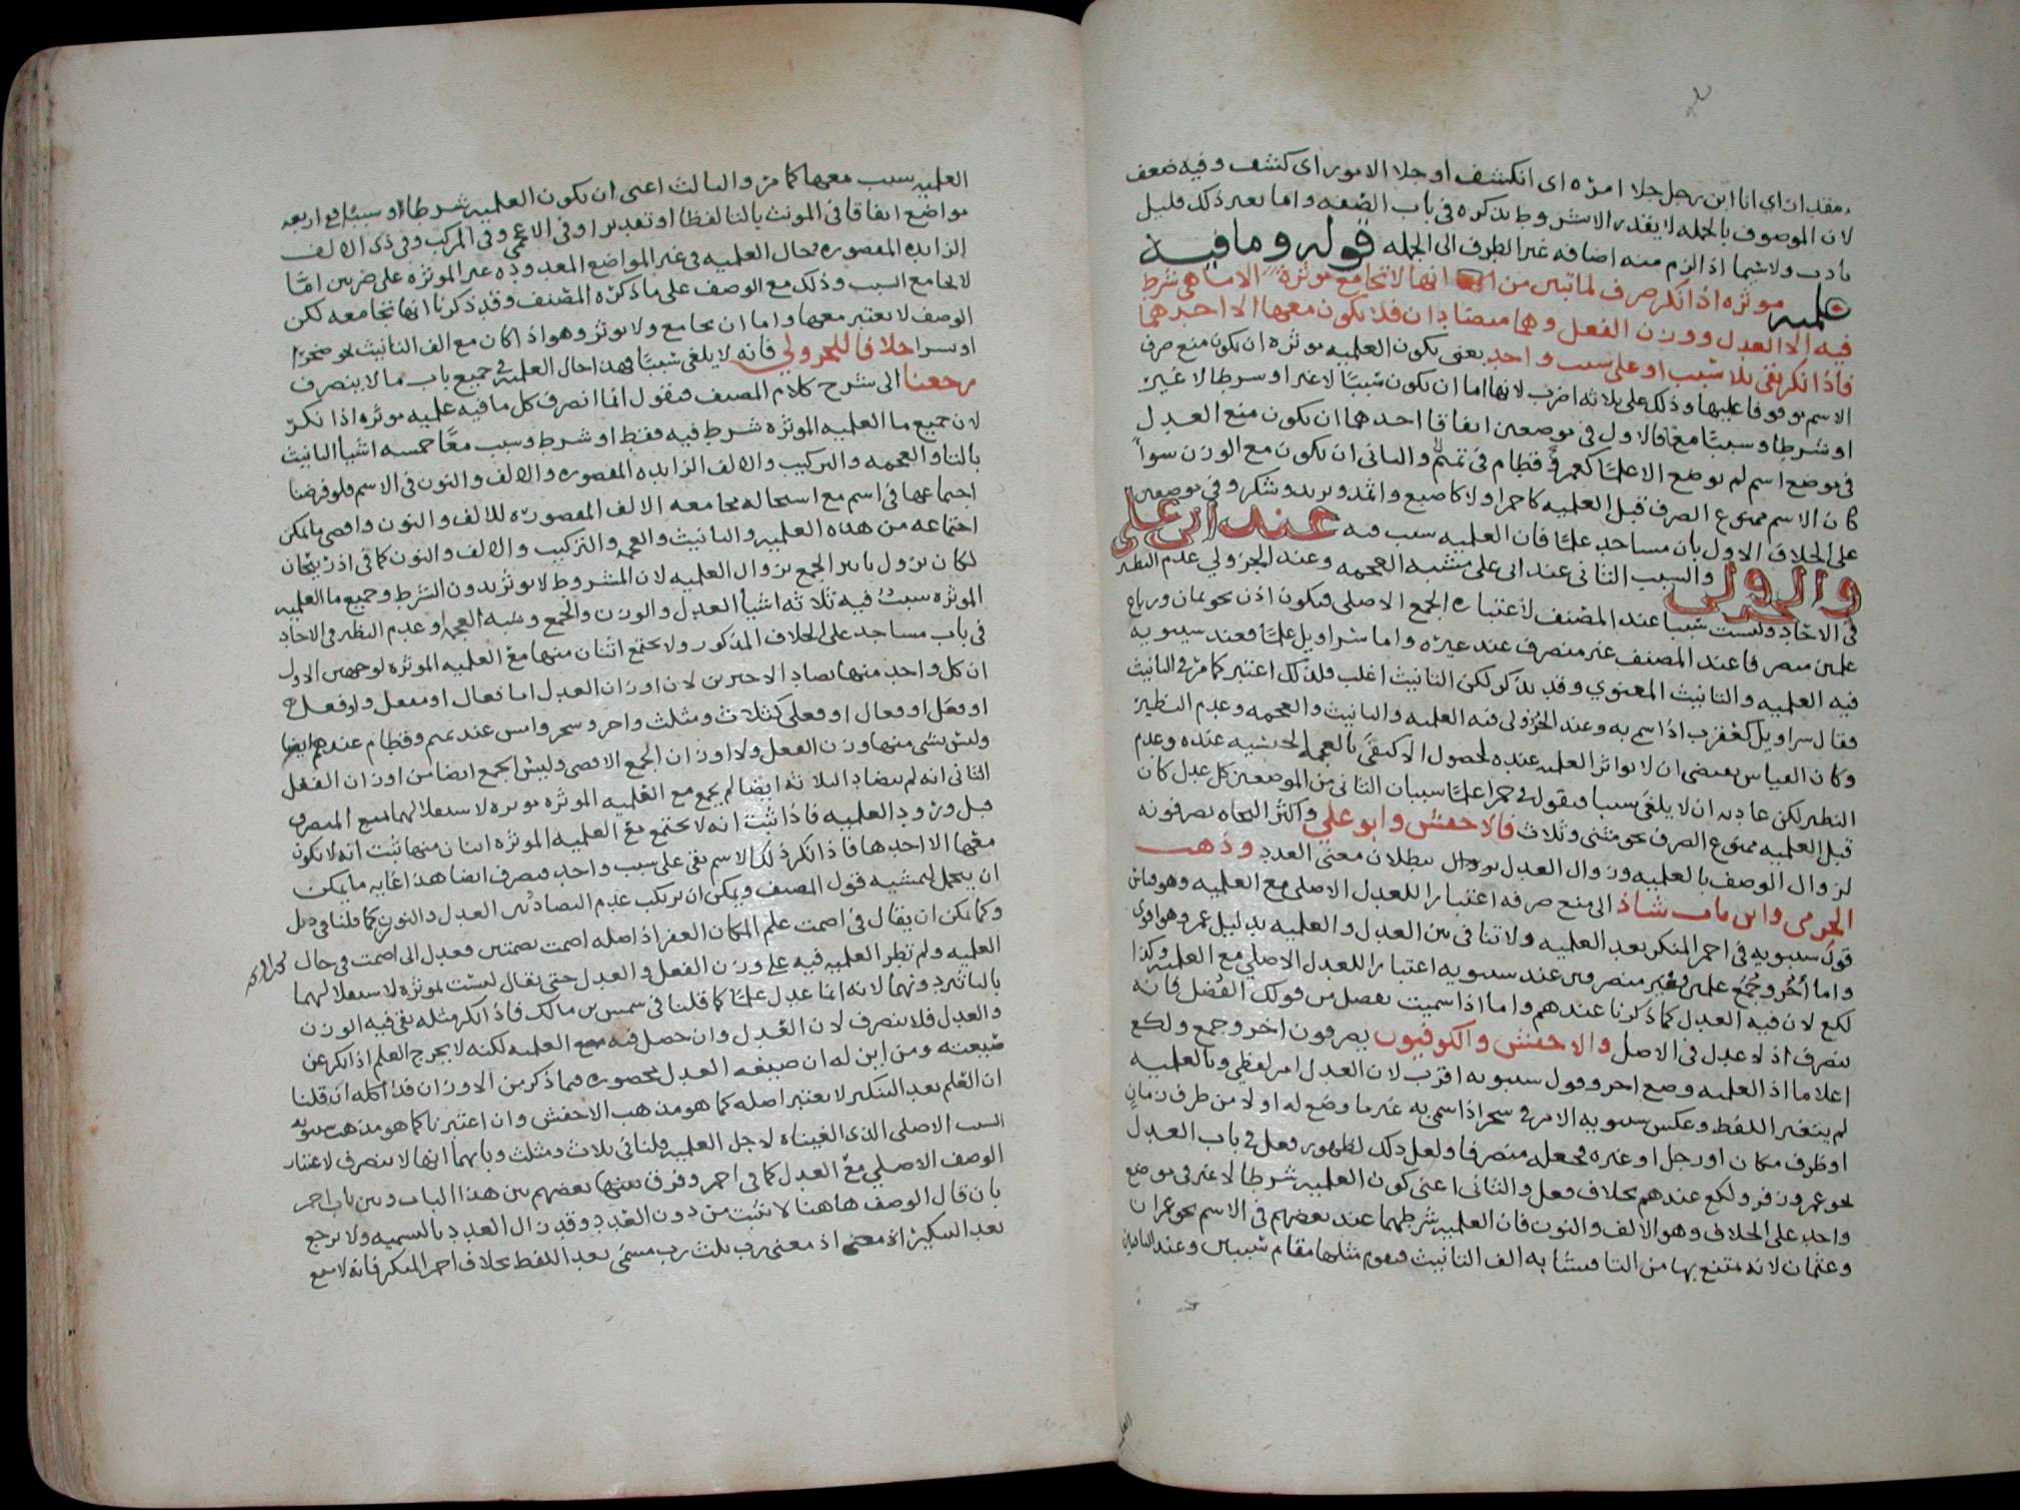 مقدران اي انا ابن رجل جلا امره اى انكشف او جلا الامور اى كشف وفيه ضعف
لان الموصوف بالجمله لا يقدر الا بشروط تذكره فى باب الصفه واما بغير ذلك فقليل
نادر ولا سيما اذا لزم منه اضافه غير الظرف الى الجمله قوله وما فيه
علميه موثره اذا نكر صرف لما تبين من انها لا تجامع موثرة الا ما هى شرط
فيه الا العدل ووزن الفعل وهما متضادان فلا يكون معها الا احدهما
فاذا نكر بقى بلا سبب او على سبب واحد يعنى بكون العلميه موثره ان يكون منع صرف
الاسم موقوفا عليها وذلك على ثلاثه اضرب لانها اما ان يكون سببًا لا غير او شرطا لا غير
او شرطا وسببًا معًا فالاول فى موضعين اتفاقا احدهما ان يكون منع العدل
فى موضع اسم لم يوضع الا علمًا كعمر وقطام فى تميم والثانى ان يكون مع الوزن سواء
كان الاسم ممنوع الصرف قبل العلميه كاحمر او لا كاصبع واثمد ويزيد ويشكر وفى موضعين
على الخلاف الاول باب مساجد علمًا فان العلميه سبب فيه عند ابى على
والجزولى والسبب الثانى عند ابى على شبه العجمه وعند الجزولي عدم النظير
فى الاحاد وليست سببا عند المصنف لاعتباره الجمع الاصلى فيكون اذن نحو ثمان ورباع
علمين منصرفا عند المصنف غير منصرف عند غيره واما سراويل علمًا فعند سيبويه
فيه العلميه والتانيث المعنوي وقد يذكر لكن التانيث اغلب فلذلك اعتبر كما مر فى التانيث
فقال سراويل كعقرب اذا سمى به وعند الجزولى فيه العلميه والتانيث والعجمه وعدم النظير
وكان القياس يقتضى ان لا يوثر العلميه عنده لحصول الاكتفى بالعجمه الجنسيه عنده وعدم
النظير لكن عادته ان لا يلغى سببا فيقول فى حمرا علمًا سببان الثانى من الموضعين كل عدل كان
قبل العلميه ممنوع الصرف نحو مثنى وثلاث فالاخفش وابو علي واكثر النحاه يصرفونه
لزوال الوصف بالعلميه وزوال العدل بزوال بطلان معنى العدد وذهب
الجرمى وابن باب شاذ الى منع صرفه اعتبارا للعدل الاصلى مع العلميه وهو قياس
قول سيبويه فى احمر المنكر بعد العلميه ولا تنافى بين العدل والعلميه بدليل عمر وهو اقوى
واما أُخَر وجُمَع علمين فغير منصرفين عند سيبويه اعتبارا للعدل الاصلي مع العلميه وكذا
لكع لان فيه العدل كما ذكرنا عندهم واما اذا سميت بفضل من قولك الفضل فانه
ينصرف اذ لا عدل فى الاصل والاخفش والكوفيون يصرفون اخر وجمع ولكع
اعلاما اذ العلميه وضع اخر وقول سيبويه اقرب لان العدل امر لفظي وبالعلميه
لم يتغير اللفظ وعكس سيبويه الامر فى سحر اذا سمى به غير ما وضع له اولا من ظرف زمان
او ظرف مكان او رجل او غيره فجعله منصرفا ولعل ذلك لظهور فعل فى باب العدل
نحو عمر وزفر ولكع عندهم بخلاف فعل والثانى اعنى كون العلميه شرطا لا غير فى موضع
واحد على الخلاف وهو الالف والنون فان العلميه شرطهما عند بعضهم فى الاسم نحو عمران
وعثمان لانه يمتنع بها من التا فيشابه الف التانيث فيقوم مثلها مقام سببين وعند الباقين
العلميه سبب معهما كما مر والثالث اعنى ان تكون العلميه شرطا او سببًا فى اربعه
مواضع اتفاقا فى المونث بالتا لفظا او تقديرا وفى الاعجمي وفى المركب وفى ذى الالف
الزايده المقصوره فحال العلميه فى غير المواضع المعدوده غير الموثره على ضربين امّا
لا يجامع السبب وذلك مع الوصف على ما ذكره المصنف وقد ذكرنا انها تجامعه لكن
الوصف لا يعتبر معها واما ان يجامع ولا يوثر وهو اذا كان مع الف التانيث نحو صحرا
او بشرا خلافا للجزولي فانه لا يلغى سببًا فهذا حال العلميه فى جميع باب ما لا ينصرف
رجعنا الى شرح كلام المصنف فنقول انما انصرف كل ما فيه علميه موثره اذا نكر
لان جميع ما العلميه الموثره شرط فيه فقط او شرط وسبب معًا خمسه اشيا التانيث
بالتا والعجمه والتركيب والالف الزايده المقصوره والالف والنون فى الاسم فلو فرضنا
اجتماعها فى اسم مع استحاله مجامعه الالف المقصوره للالف والنون واقصى ما يمكن
اجتماعه من هذه العلميه والتانيث والعجمه والتركيب والالف والنون كما فى اذربيجان
لكان يزول تاثير الجمع بزوال العلميه لان المشروط لا يوثر بدون الشرط وجميع ما العلميه
الموثره سبب فيه ثلاثه اشيا العدل والوزن والجمع وشبه العجمه او عدم النظير فى الاحاد
فى باب مساجد على الخلاف المذكور ولا يجتمع اثنان منها مع العلميه الموثره لوجهين الاول
ان كل واحد منها يضاد الاخرين لان اوزان العدل اما فعال او مفعل او فعل
او فعل او فعال او فعلى كثلاث ومثلث واخر وسحر وامس عند تميم وقطام عندهم ايضا
وليس شى منها وزن الفعل ولا اوزان الجمع الاقصى وليس الجمع ايضا من اوزان الفعل
الثانى انه لم يتضاد الثلاثه ايضا لم يجمع مع العلميه الموثره موثره لاستقلالهما بمنع الصرف
قبل ورود العلميه فاذا ثبت انه لا يجتمع مع العلميه الموثره اثنان منها ثبت انه لا يكون
معها الا احدها فاذا نكر ذلك الاسم بقى على سبب واحد فيصرف ايضا هذا غايه ما يمكن
ان يتحمل لتمشيه قول المصنف ويمكن ان يرتكب عدم التضاد بين العدل والوزن كما قلنا فى دئل
وكما يمكن ان يقال فى اصمت علم المكان القفر اذ اصله اصمت بضمتين فعدل الى اصمت فى حال
العلميه ولم تطر العلميه فيه على وزن الفعل والعدل حتى يقال ليست بموثره لاستقلالهما
بالتاثير دونهما لانه انما عدل علمًا كما قلنا فى شمس بن مالك فاذا نكر مثله بقى فيه الوزن
والعدل فلا ينصرف لان العدل وان حصل فيه مع العلميه لكنه لا يخرج العلم اذا نكر عن
صيغته ومن اين له ان صيغه العدل محصوره فيما ذكر من الاوزان هذا كله ان قلنا
ان العلم بعد التنكير لا يعتبر اصله كما هو مذهب الاخفش وان اعتبرنا كما هو مذهب سيبويه
السبب الاصلى الذى الغيناه لاجل العلميه قلنا فى ثلاث ومثلث وبابهما انها لا ينصرف لاعتبار
الوصف الاصلي مع العدل كما فى احمر وفرق بعضهم بين هذا الباب وبين باب احمر
بان قال الوصف هاهنا لا يثبت من دون العدد وقد زال العدد بالتسميه ولا يرجع
بعد التنكير اذ معنى رب ثلاث رب مسمى بهذا اللفظ بخلاف احمر المنكر فانه لا يمنع